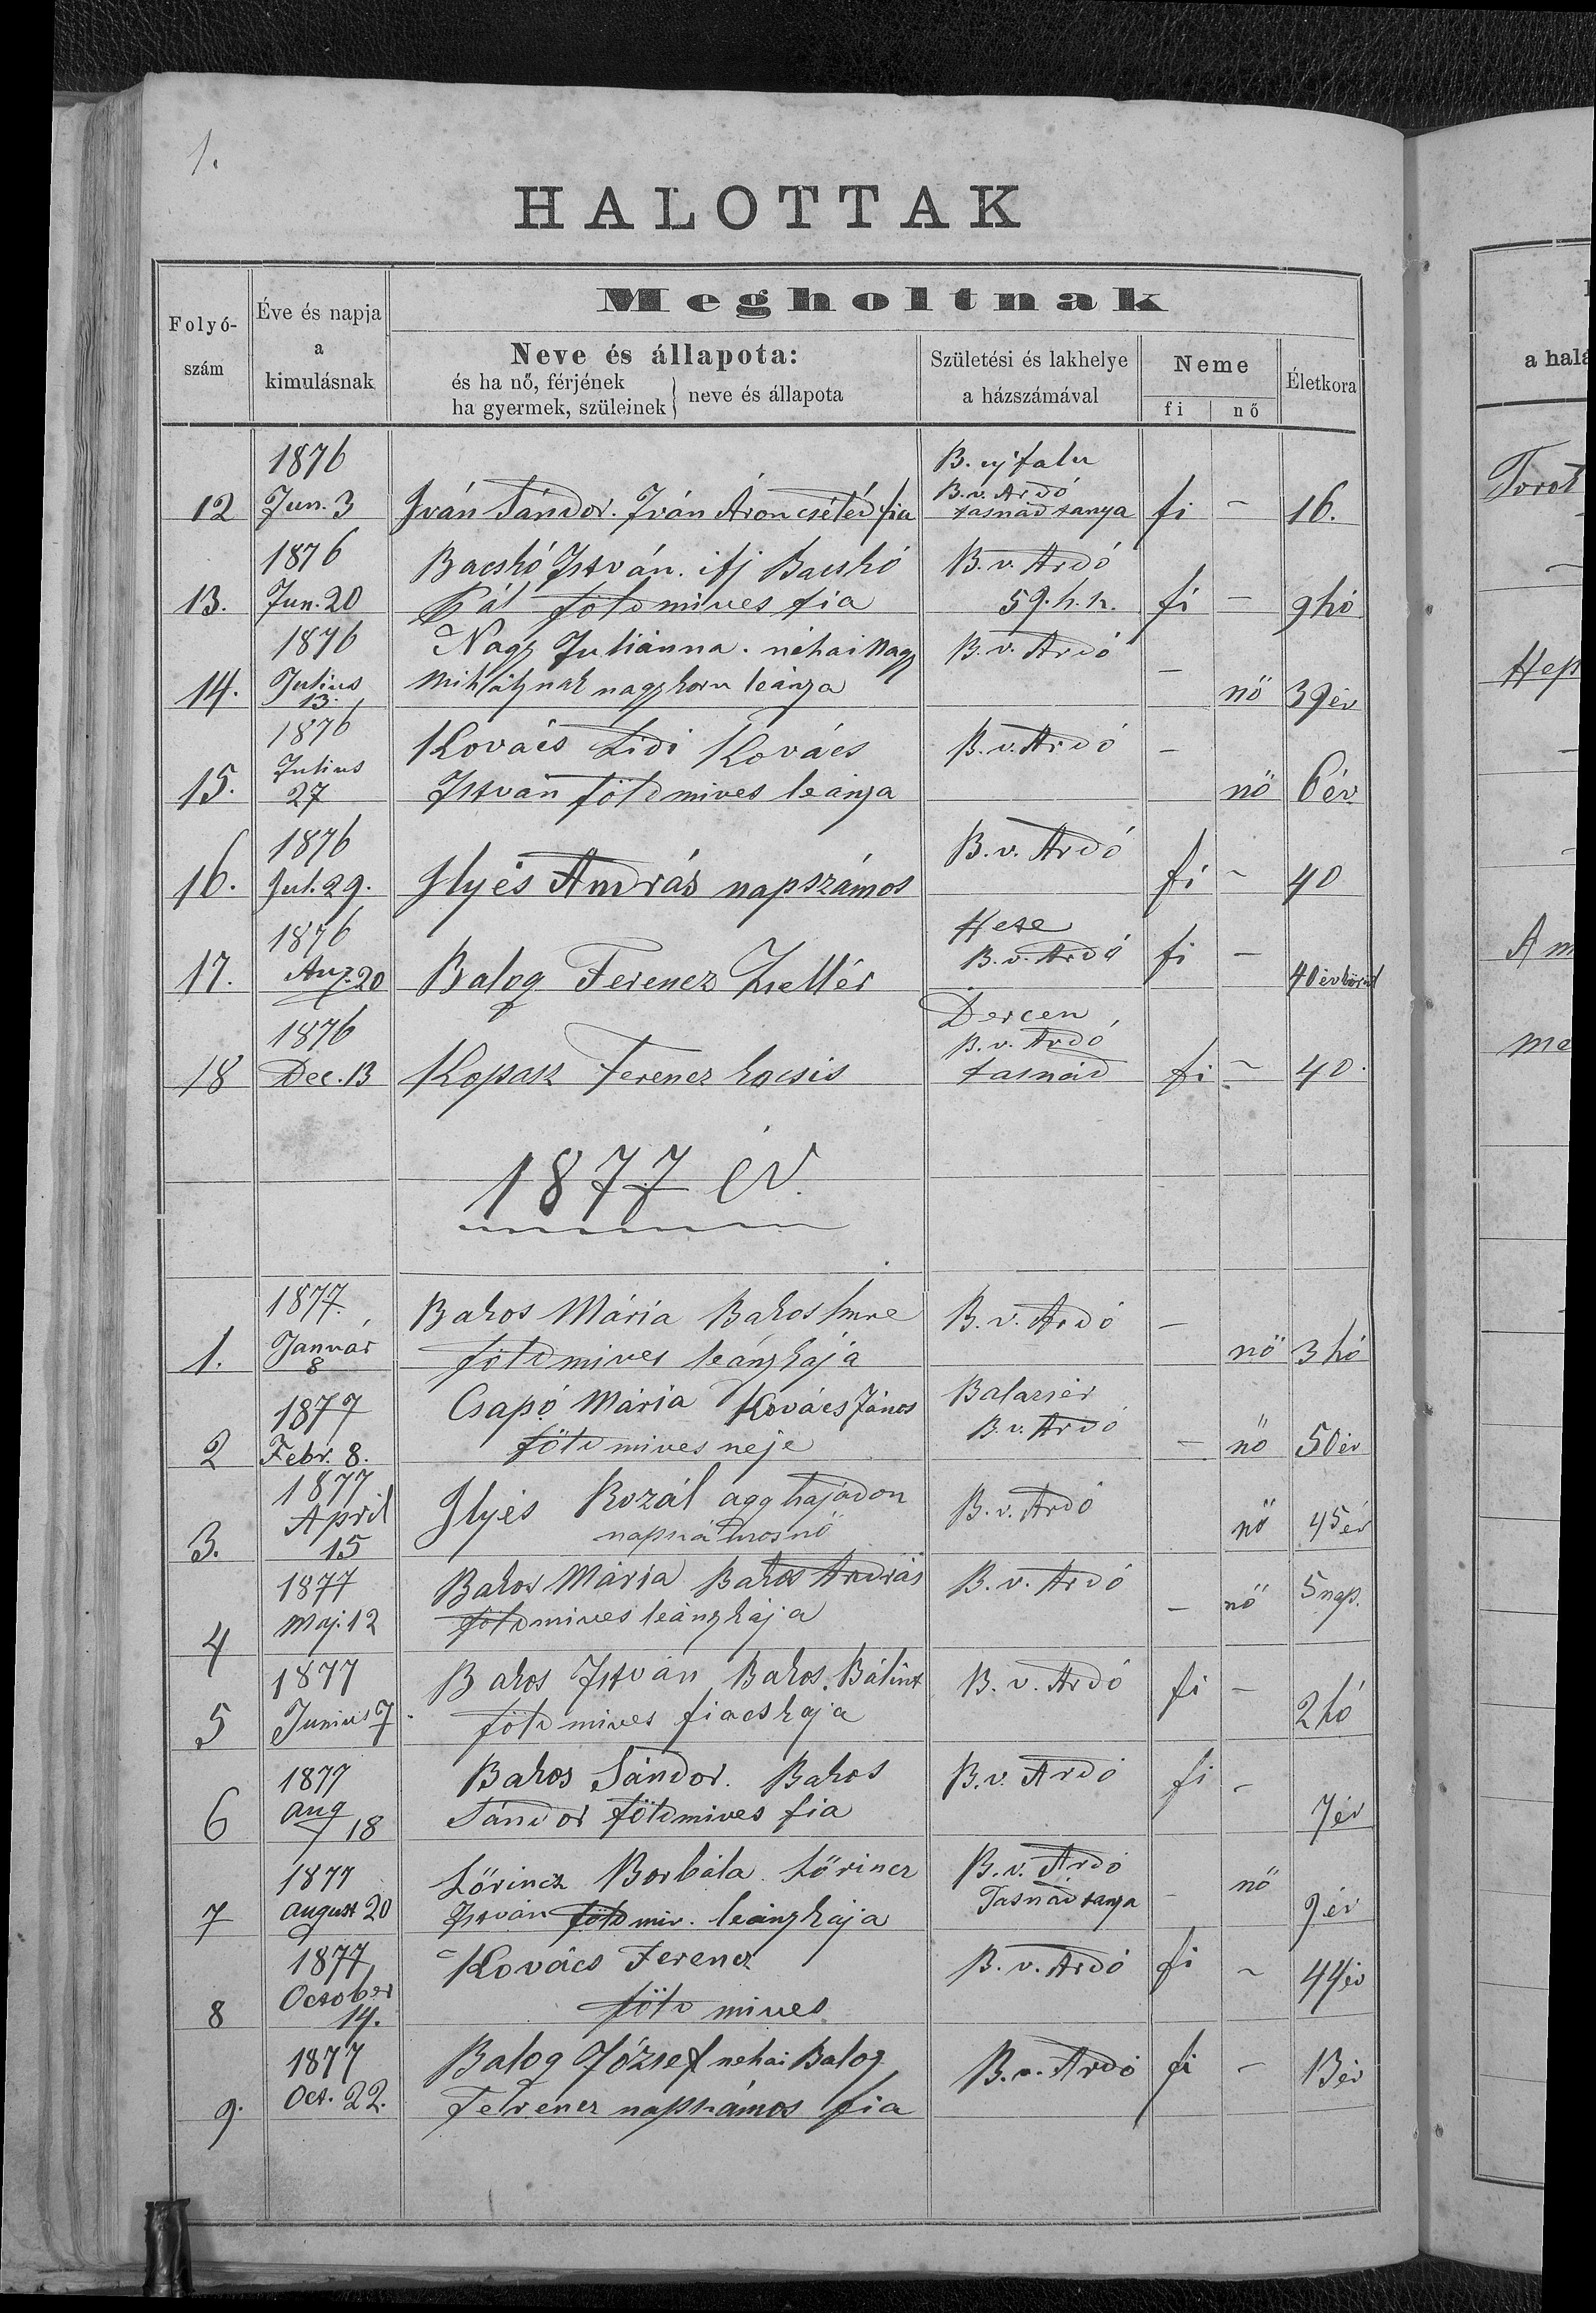 1.
HALOTTAK
Folyó-
szám
Éve és napja
a
kimulásnak
Megholtnak
Neve és állapota:
és ha nő, férjének
ha gyermek, szüleinek
neve és állapota
Születési és lakhelye
a házszámával
Neme
fi nő
Életkora
1876 B. ujfalu
B. v. Ardó
12 Jun. 3 Iván Sándor. Iván Áron cseléd fia tasnád tanya fi - 16.
1876 Bacskó István. ifj Bacskó B. v. Ardó
13. Jun. 20 Pál földmives fia 59. h. sz. fi - 9 hó
1876 Nagy Juliánna. néhai Nagy B. v. Ardó -
14. Julius Mihálynak nagykoru leánya nö 39 év
13.
1876 Kovács Lidi Kovács B. v. Ardó -
Julius
15. 27 István földmives leánya nö 6 év
1876 B. v. Ardó
16. Jul. 29. Ilyés András napszámos fi - 40
1876 Hete
B. v. Ardó fi -
17. Aug. 20 Balog Ferencz Zsellér 40 év körül
1876 Dercen
B. v. Ardó
18 Dec. 13 Kopasz Ferencz kocsis tasnád fi - 40.
1877 év.
1877. Bakos Mária Bakos Imre B. v. Ardó -
1. Január földmives leánykája nö 3 hó
8
1877 Csapó Mária Kovács János Balazsér
B. v. Ardó
2 Febr. 8. földmives neje - nö 50 év
1877 Ilyés Rozál agg hajadon B. v. Ardó
April napszámosnö nö 45 év
3. 15
1877 Bakos Mária Bakos András B. v. Ardó 5 nap.
Maj. 12 földmives leánykája - nö
4
1877 Bakos István Bakos Bálint B. v. Ardó fi -
5 Junius 7. földmives fiacskaja 2 hó
1877 Bakos Sándor. Bakos B. v. Ardó fi -
6 aug 18 Sándor földmives fia 7 év
1877 Lőrincz Borbála Lőrincz B. v. Ardó nö
7 august 20 István földmiv. leánykája Tasnád tanya - 9 év
1877 Kovács Ferencz B. v. Ardó fi - 44 év
October
8 14. földmives
1877 Balog József nehai Balog B. v. Ardó fi - 13 év
9. Oct. 22. Ferencz napszámos fia
a halá
Torok
Am
me